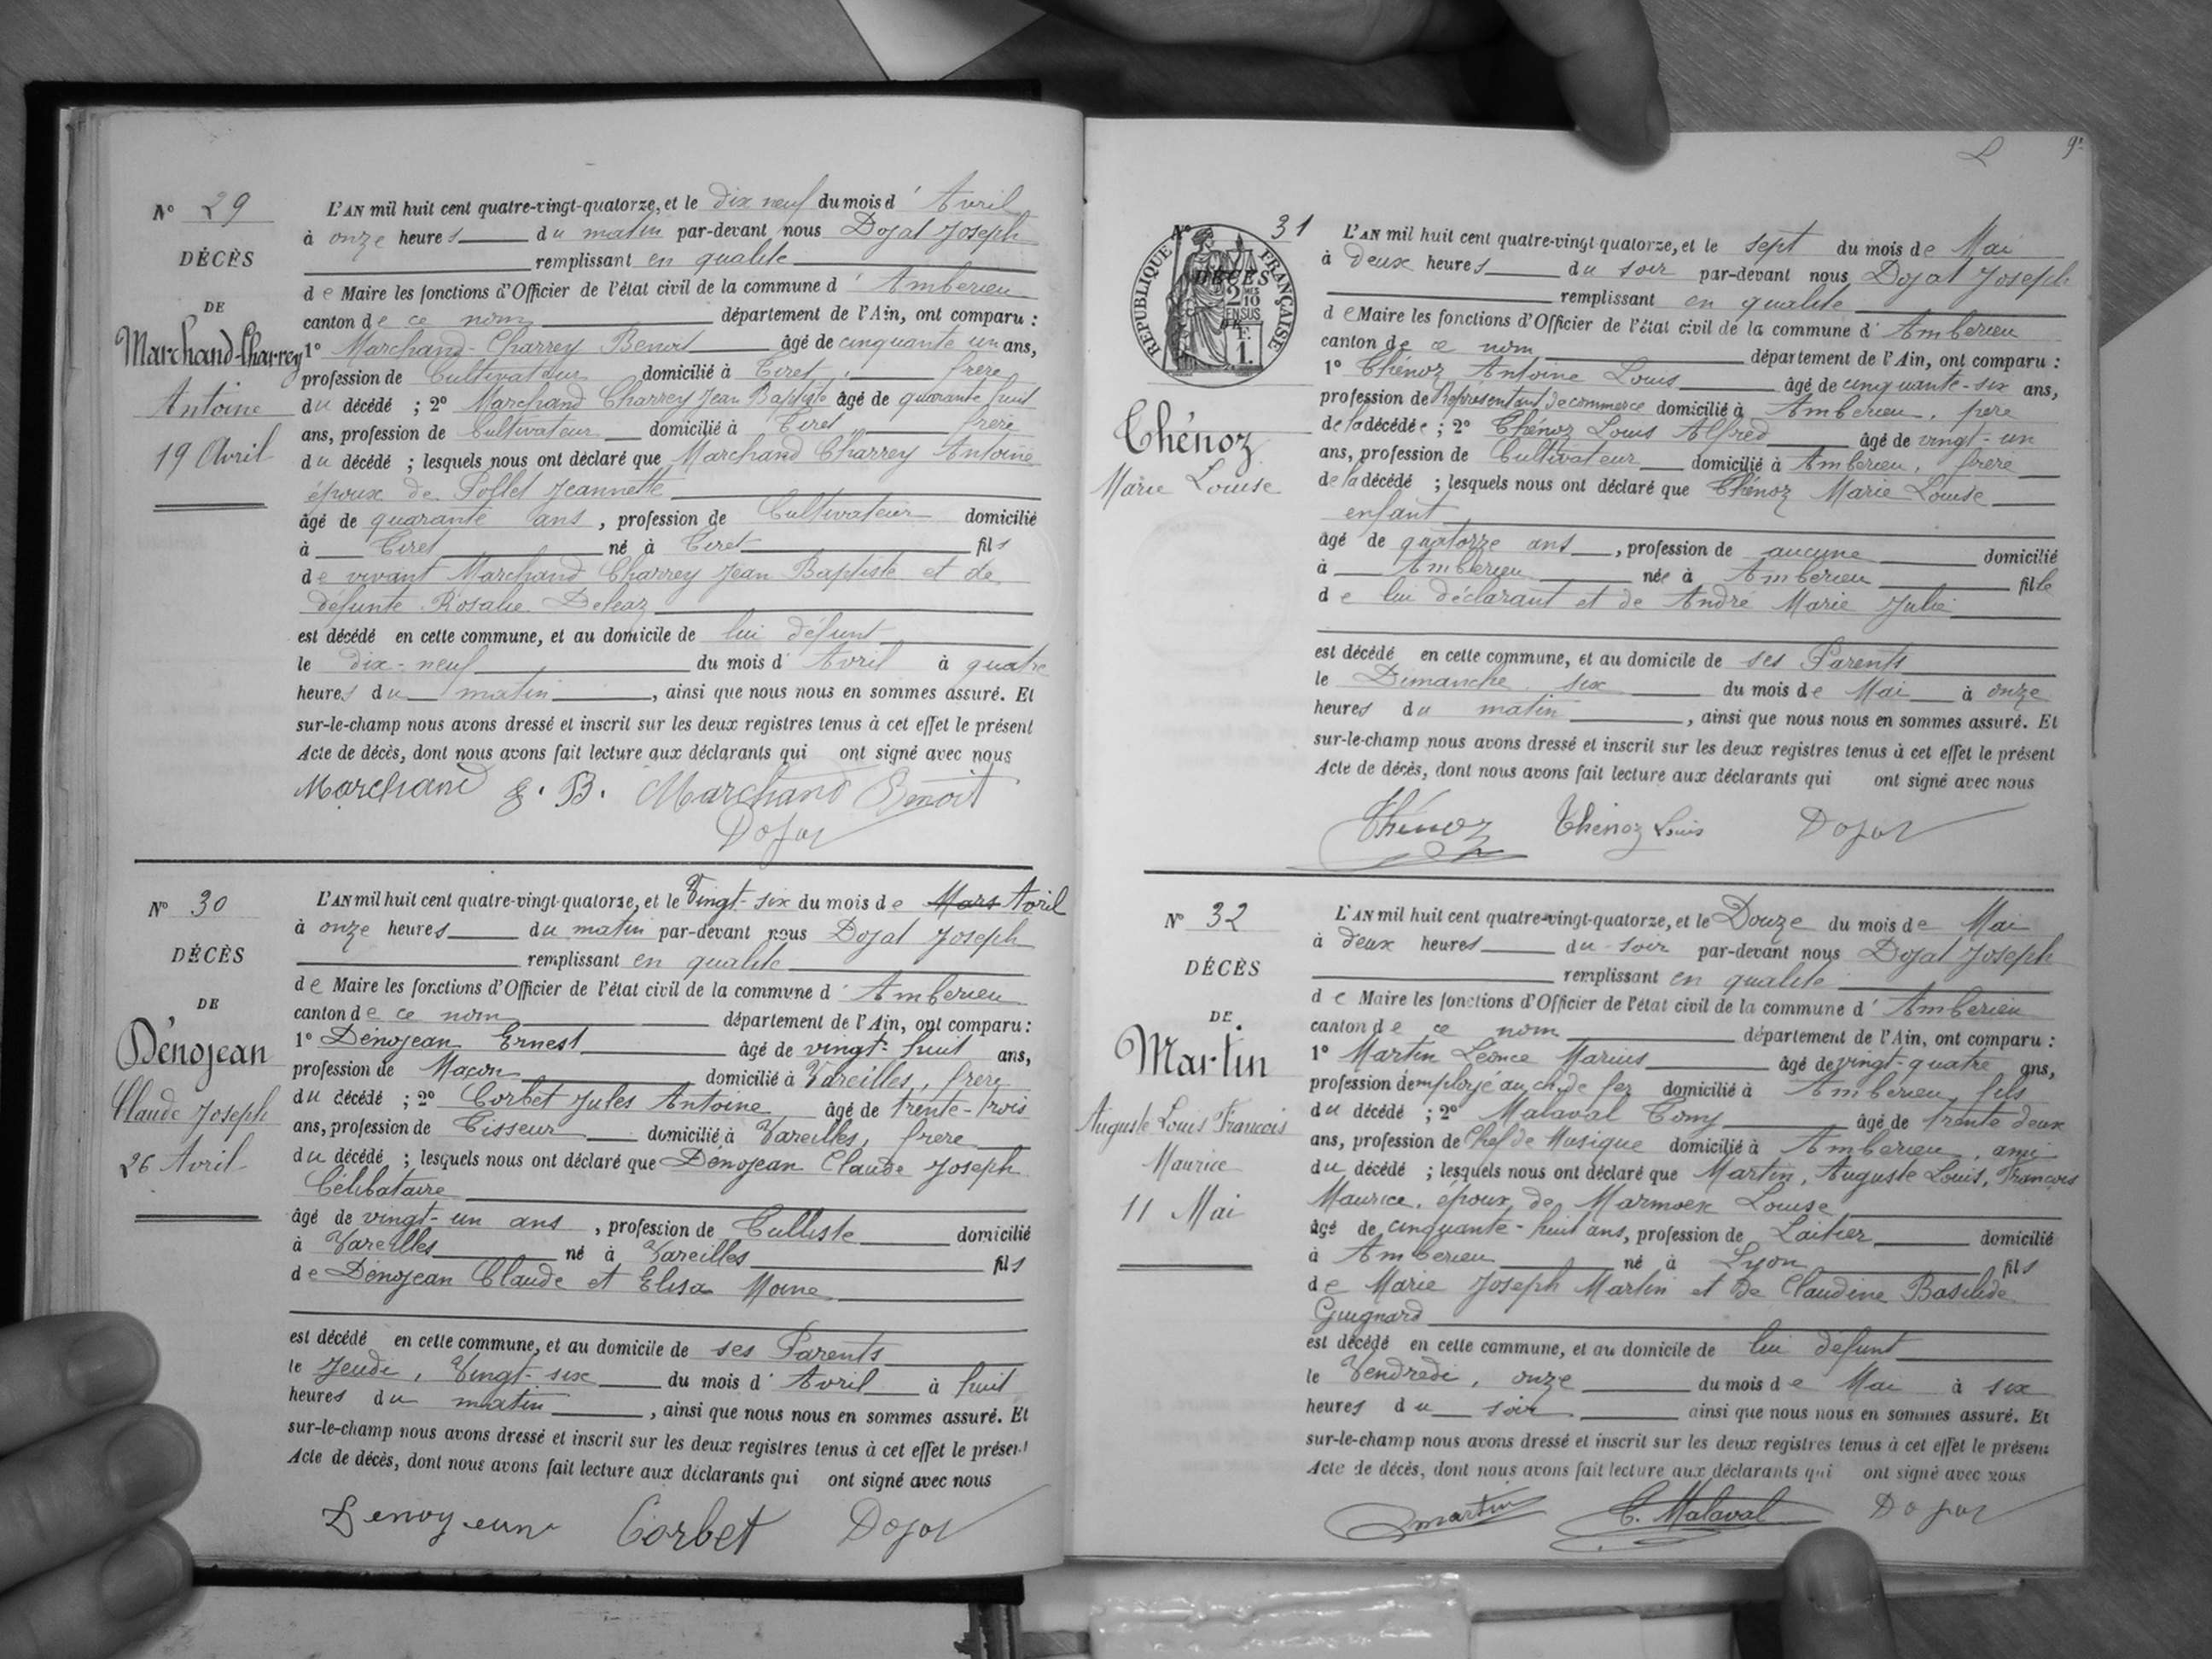 Nº 29
DÉCÈS
DE
Marchand-Charrey
Antoine
19 Avril
L'AN mil huit cent quatre-vingt-quatorze, et le dix neuf du mois d'Avril
à onze heures du matin par-devant nous Dojat Joseph
remplissant en qualité
de Maire les fonctions d'Officier de l'état civil de la commune d'Amberieu
canton de ce nom département de l'Ain, ont comparu :
1º Marchand-Charrey Benoit âgé de cinquante un ans,
profession de Cultivateur domicilié à Tiret, frère
du décédé ; 2º Marchand Charrey Jean Baptiste âgé de quarante huit
ans, profession de Cultivateur domicilié à Tiret frère
du décédé ; lesquels nous ont déclaré que Marchand Charrey Antoine
époux de Pollet Jeannette
âgé de quarante ans, profession de Cultivateur domicilié
à Tiret né à Tiret fils
de vivant Marchand Charrey Jean Baptiste et de
défunte Rosalie Deleaz
est décédé en cette commune, et au domicile de lui défunt
le dix-neuf du mois d'Avril à quatre
heures du matin, ainsi que nous nous en sommes assuré. Et
sur-le-champ nous avons dressé et inscrit sur les deux registres tenus à cet effet le présent
Acte de décès, dont nous avons fait lecture aux déclarants qui ont signé avec nous
Marchand J. B. Marchand Benoit
Dojat
Nº 30
DÉCÈS
DE
Dénojean
Claude Joseph
26 Avril
L'AN mil huit cent quatre-vingt-quatorze, et le Vingt-six du mois de Mars Avril
à onze heures du matin par-devant nous Dojat Joseph
remplissant en qualité
de Maire les fonctions d'Officier de l'état civil de la commune d'Amberieu
canton de ce nom département de l'Ain, ont comparu :
1º Dénojean Ernest âgé de vingt-huit ans,
profession de Maçon domicilié à Vareilles, frère
du décédé ; 2º Corbet Jules Antoine âgé de trente-trois
ans, profession de Tisseur domicilié à Vareilles, frère
du décédé ; lesquels nous ont déclaré que Denojean Claude Joseph
Célibataire
âgé de vingt-un ans, profession de Tulliste domicilié
à Vareilles né à Vareilles fils
de Dénojean Claude et Elisa Moine
est décédé en cette commune, et au domicile de ses Parents
le Jeudi, Vingt-six du mois d'Avril à huit
heures du matin, ainsi que nous nous en sommes assuré. Et
sur-le-champ nous avons dressé et inscrit sur les deux registres tenus à cet effet le présent
Acte de décès, dont nous avons fait lecture aux déclarants qui ont signé avec nous
Denojean Corbet Dojat
9
Nº 31
RÉPUBLIQUE FRANÇAISE
DÉCÈS
2 MES
10
EN SUS
DE
1 F.
Thénoz
Marie Louise
L'AN mil huit cent quatre-vingt quatorze, et le sept du mois de Mai
à deux heures du soir par-devant nous Dojat Joseph
remplissant en qualité
de Maire les fonctions d'Officier de l'état civil de la commune d'Amberieu
canton de ce nom département de l'Ain, ont comparu :
1º Thénoz Antoine Louis âgé de cinquante-six ans,
profession de Représentant de commerce domicilié à Amberieu, père
de la décédée ; 2º Thénoz Louis Alfred âgé de vingt-un
ans, profession de Cultivateur domicilié à Amberieu, frère
de la décédé ; lesquels nous ont déclaré que Thénoz Marie Louise
enfant
âgé de quatorze ans, profession de aucune domicilié
à Amberieu née à Amberieu fille
de lui déclarant et de André Marie Julie
est décédé en cette commune, et au domicile de ses Parents
le Dimanche six du mois de Mai à onze
heures du matin, ainsi que nous nous en sommes assuré. Et
sur-le-champ nous avons dressé et inscrit sur les deux registres tenus à cet effet le présent
Acte de décès, dont nous avons fait lecture aux déclarants qui ont signé avec nous
Thénoz Thénoz Louis Dojat
Nº 32
DÉCÈS
DE
Martin
Auguste Louis Francois
Maurice
11 Mai
L'AN mil huit cent quatre-vingt-quatorze, et le Douze du mois de Mai
à deux heures du soir par-devant nous Dojat Joseph
remplissant en qualité
de Maire les fonctions d'Officier de l'état civil de la commune d'Amberieu
canton de ce nom département de l'Ain, ont comparu :
1º Martin Léonce Marius âgé de vingt-quatre ans,
profession d'employé au ch. de fer domicilié à Amberieu, fils
du décédé ; 2º Malaval Tony âgé de trente deux
ans, profession de Chef de Musique domicilié à Amberieu, ami
du décédé ; lesquels nous ont déclaré que Martin, Auguste Louis, Francois
Maurice, époux de Marmoex Louise
âgé de cinquante-huit ans, profession de Laitier domicilié
à Amberieu né à Lyon fils
de Marie Joseph Martin et de Claudine Basilide
Guignard
est décédé en cette commune, et au domicile de lui défunt
le Vendredi, onze du mois de Mai à six
heures du soir ainsi que nous nous en sommes assuré. Et
sur-le-champ nous avons dressé et inscrit sur les deux registres tenus à cet effet le présent
Acte de décès, dont nous avons fait lecture aux déclarants qui ont signé avec nous
Martin C. Malaval Dojat